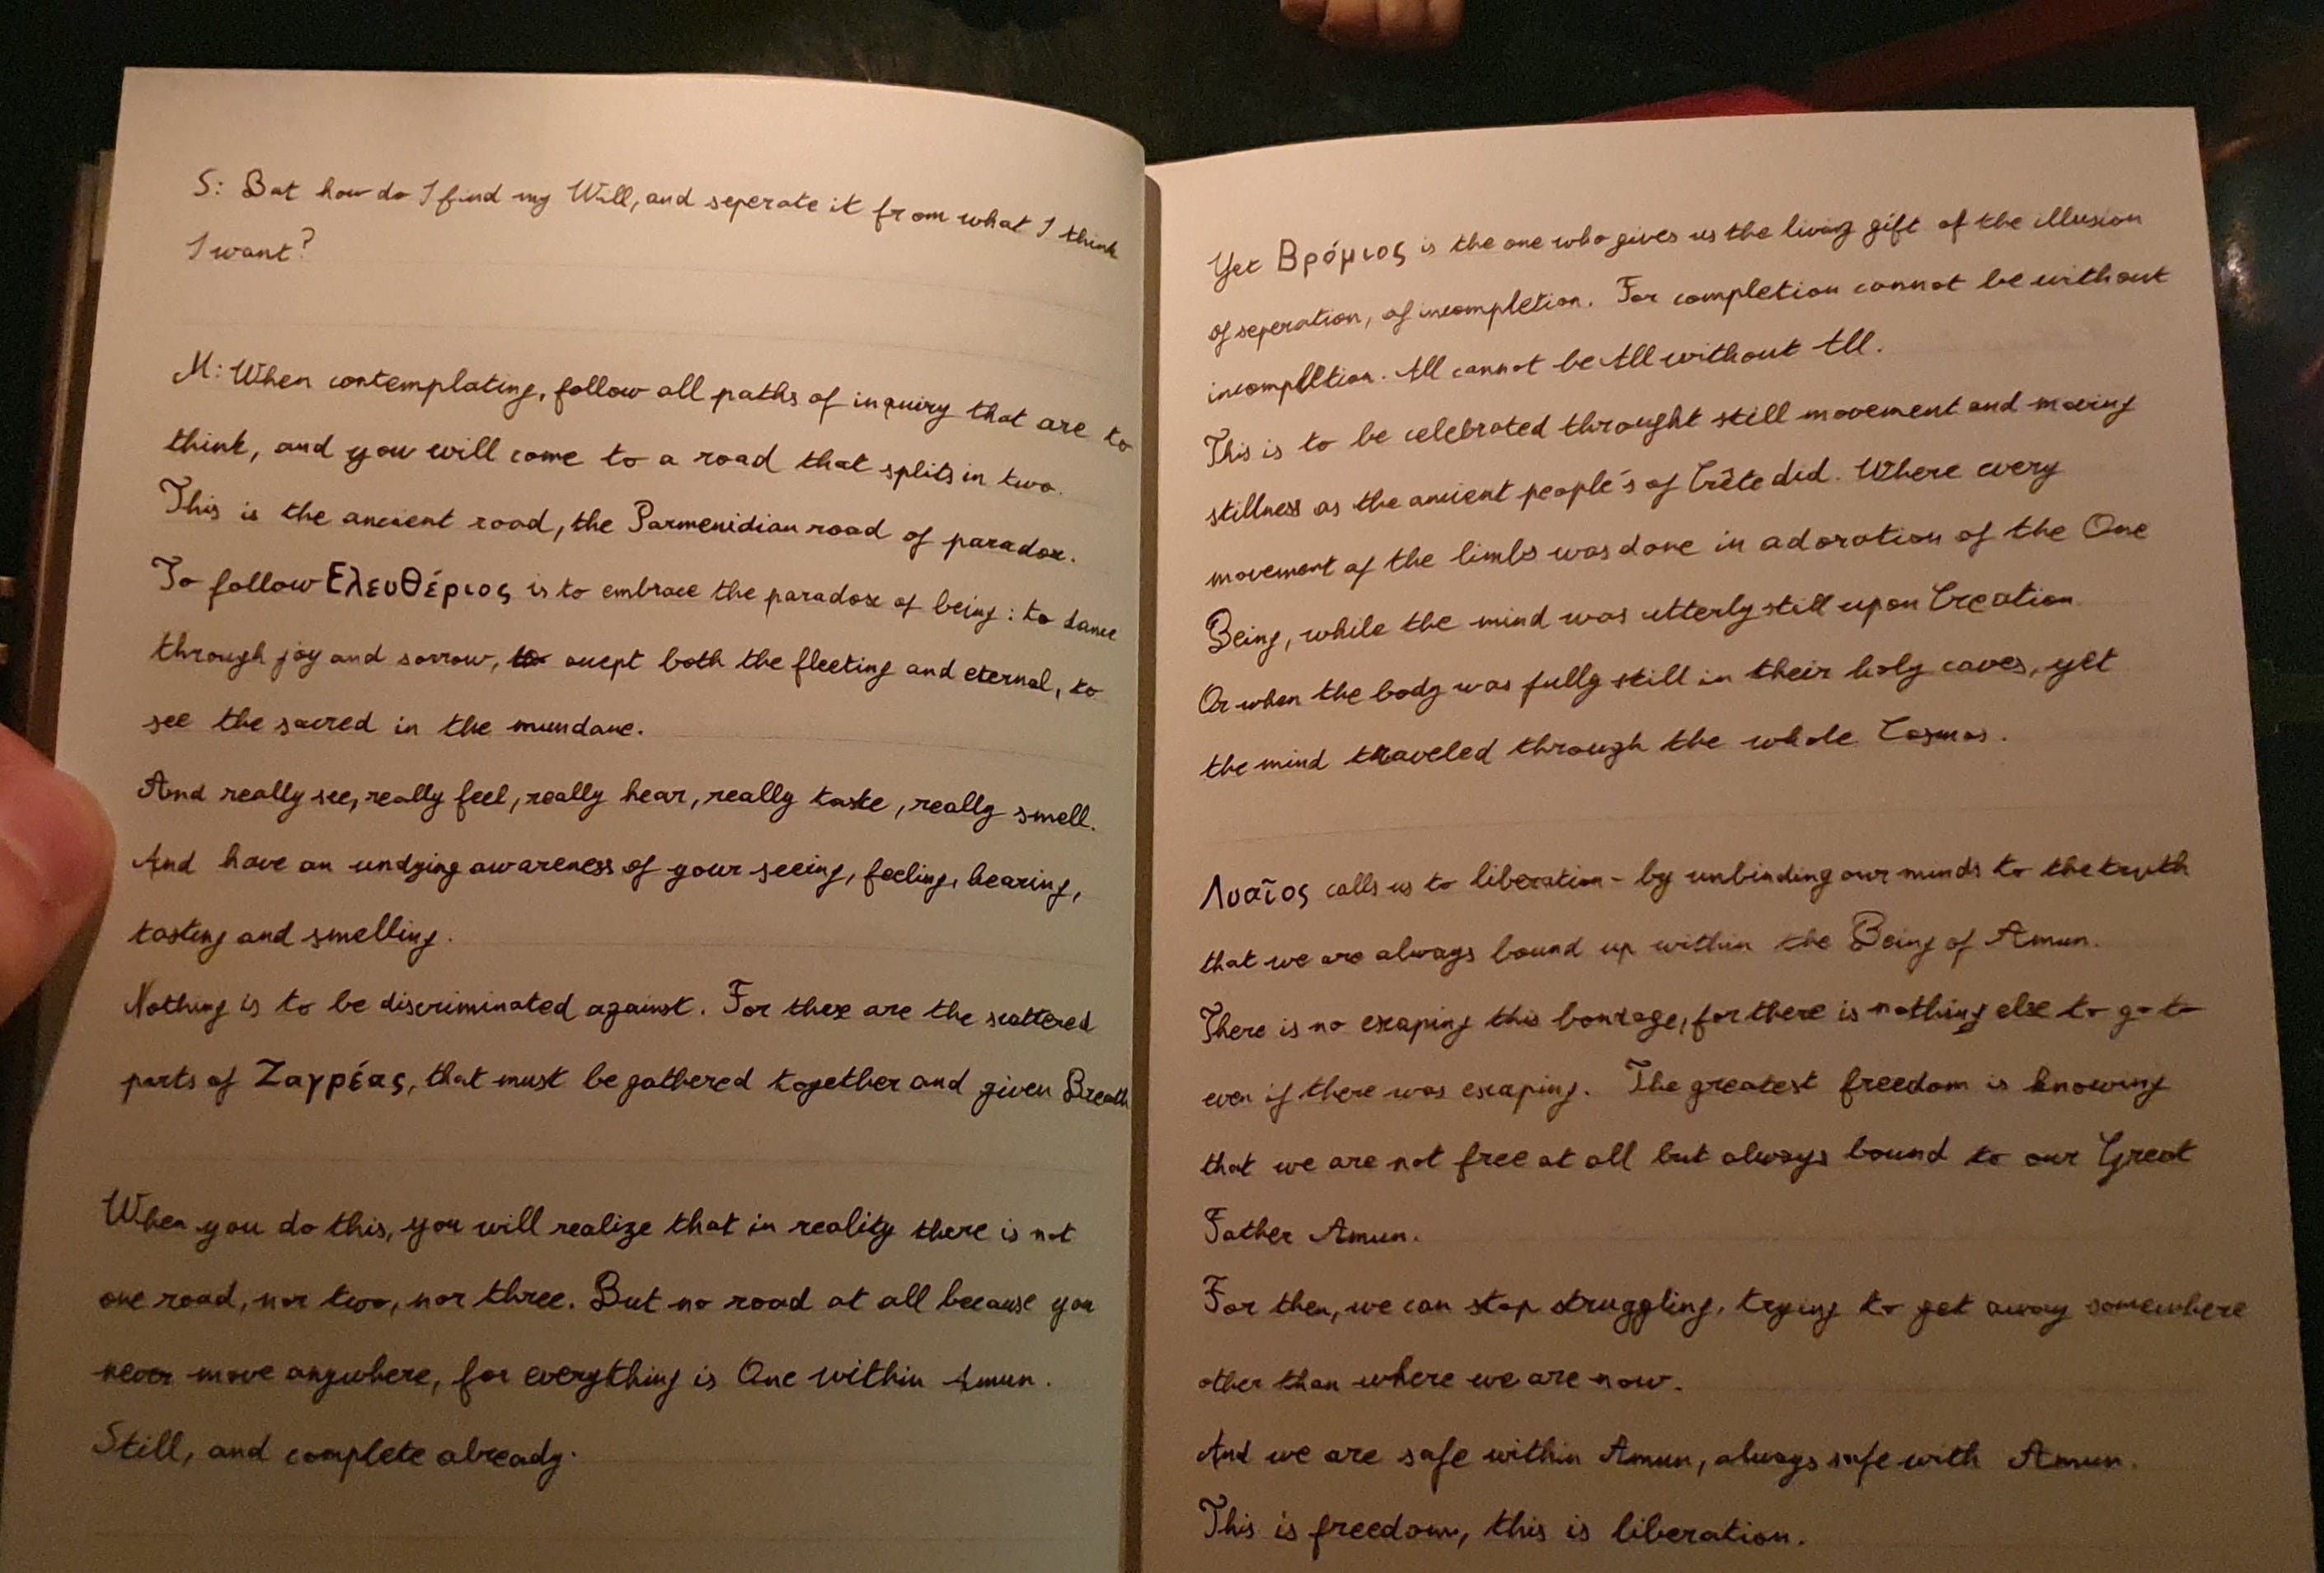 S: But how do I find my Will, and seperate it from what I think
I want?
M: When contemplating, follow all paths of inquiry that are to
think, and you will come to a road that splits in two.
This is the ancient road, the Parmenidian road of paradox.
To follow Ελευθέριος is to embrace the paradox of being: to dance
through joy and sorrow, to accept both the fleeting and eternal, to
see the sacred in the mundane.
And really see, really feel, really hear, really taste, really smell.
And have an undying awareness of your seeing, feeling, hearing,
tasting and smelling.
Nothing is to be discriminated against. For these are the scattered
parts of Ζαγρέας, that must be gathered together and given Breath
When you do this, you will realize that in reality there is not
one road, nor two, nor three. But no road at all because you
never move anywhere, for everything is One within Amun.
Still, and complete already.
Yet Βρόμιος is the one who gives us the living gift of the illusion
of seperation, of incompletion. For completion cannot be without
incompletion. All cannot be All without All.
This is to be celebrated throught still movement and moving
stillness as the ancient people's of Crête did. Where every
movement of the limbs was done in adoration of the One
Being, while the mind was utterly still upon Creation.
Or when the body was fully still in their holy caves, yet
the mind traveled through the whole Cosmos.
Λυαῖος calls us to liberation - by unbinding our minds to the truth
that we are always bound up within the Being of Amun.
There is no escaping this bondage, for there is nothing else to go to
even if there was escaping. The greatest freedom is knowing
that we are not free at all but always bound to our Great
Father Amun.
For then, we can stop struggling, trying to get away somewhere
other than where we are now.
And we are safe within Amun, always safe with Amun.
This is freedom, this is liberation.